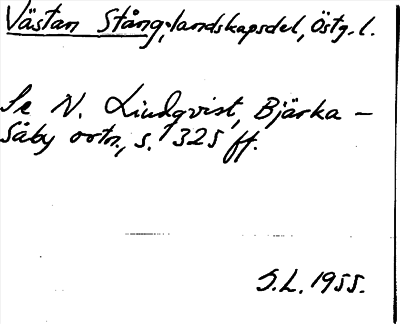 Västan Stång, landskapsdel, Östg. l.
Se N. Lindqvist, Bjärka-
Säby ortn., s. 325 ff.
S.L. 1955.